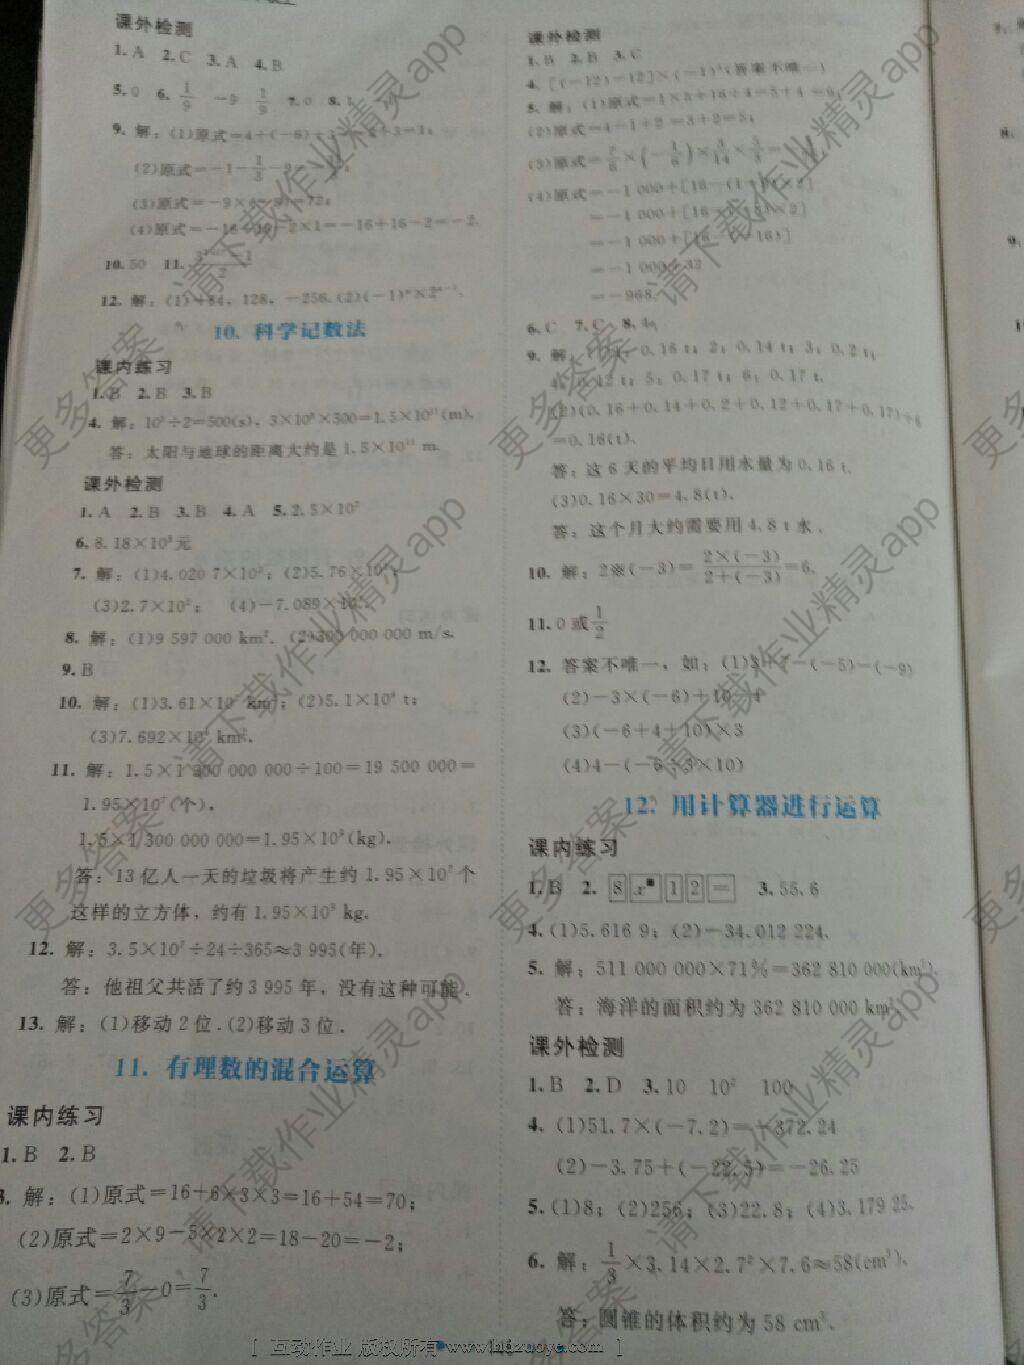 课外检测
1. A 2. C 3. A 4. B
5. 0 6. 1/9 -9 1/9 7. 0 8.
9. 解：(1)原式=4÷(-6)+3=
(2)原式=-1-1/3-
(3)原式=-9× =72；
(4)原式=-16+16-2×1=-16+16-2=-2.
10. 50 11.
12. 解：(1)+64，128，-256.(2)(-1)ⁿ×2
10. 科学记数法
课内练习
1. B 2. B 3. B
4. 解：10³÷2=500(s)，3×10⁸×500=1.5×10¹¹(m).
答：太阳与地球的距离大约是1.5×10¹¹ m.
课外检测
1. A 2. B 3. B 4. A 5. 2.5×10
6. 8.18×10 元
7. 解：(1)4.020 7×10 ；(2)5.76×10
(3)2.7×10 ； (4)-7.089×10
8. 解：(1)9 597 000 km². (2)300 000 000 m/s.
9. B
10. 解：(1)3.61×10 km²；(2)5.1×10 t；
(3)7.692×10 km².
11. 解：1.5×1 300 000 000÷100=19 500 000=
1.95×10⁷(个).
1.5×1 300 000 000=1.95×10⁹(kg).
答：13亿人一天的垃圾将产生约1.95×10⁷个
这样的立方体，约有1.95×10⁹ kg.
12. 解：3.5×10⁷÷24÷365≈3 995(年).
答：他祖父共活了约3 995年，没有这种可能.
13. 解：(1)移动2位.(2)移动3位.
11. 有理数的混合运算
课内练习
1. B 2. B
3. 解：(1)原式=16+6×3×3=16+54=70；
(2)原式=2×9-5×2×2=18-20=-2；
(3)原式=7/3-0=7/3.
课外检测
1. B 2. B 3. C
4. [(-12)-12]×(-1) (答案不唯一)
5. 解：(1)原式=1×5+
(2)原式=4-1+2=3+2=5；
(3)原式=7/8×(-1/6)×3/14×
(4)原式=-1 000+[16-(1- )×2]
=-1 000+[16- ×2]
=-1 000+[16-(-16)]
=-1 000+32
=-968.
6. C 7. C 8. 4
9. 解：(1)1：0.16 t；2：0.14 t；3：0.2 t；
4：0.12 t；5：0.17 t；6：0.17 t.
(2)(0.16+0.14+0.2+0.12+0.17+0.17)÷6
=0.16(t).
答：这6天的平均日用水量为0.16 t.
(3)0.16×30=4.8(t).
答：这个月大约需要用4.8 t水.
10. 解：2※(-3)=2×(-3)/2+(-3)=6.
11. 0或1/2
12. 答案不唯一，如：(1)3 7-(-5)-(-9)
(2)-3×(-6)+10 4
(3)(-6+4+10)×3
(4)4-(-6÷3×10)
12. 用计算器进行运算
课内练习
1. B 2. 8 x■ 1 2 = 3. 55.6
4. (1)5.616 9；(2)-34.012 224.
5. 解：511 000 000×71%=362 810 000(km²).
答：海洋的面积约为362 810 000 km².
课外检测
1. B 2. D 3. 10 10² 100
4. (1)51.7×(-7.2)=-372.24
(2)-3.75+(-22.5)=-26.25
5. (1)8；(2)256；(3)22.8；(4)3.179 25.
6. 解：1/3×3.14×2.7²×7.6≈58(cm³).
答：圆锥的体积约为58 cm³.
更多答案
请下载作业精灵app
[ 互动作业 版权所有 www.hdzuoye.com ]